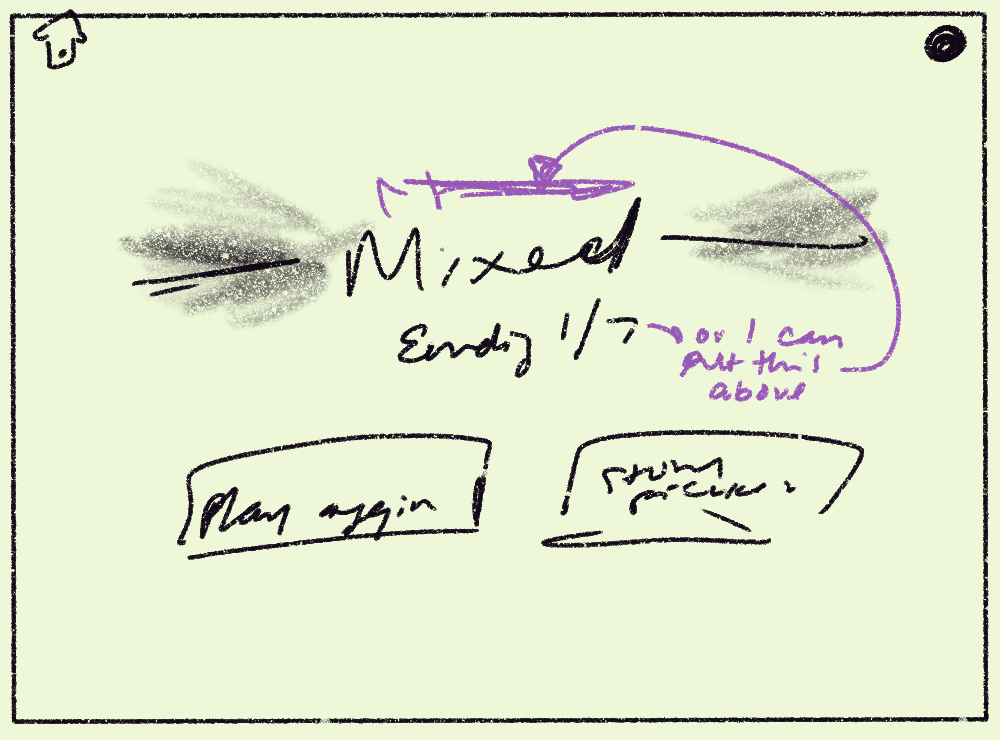 Mixed
Ending 1/7
or I can
put this
above
Play again